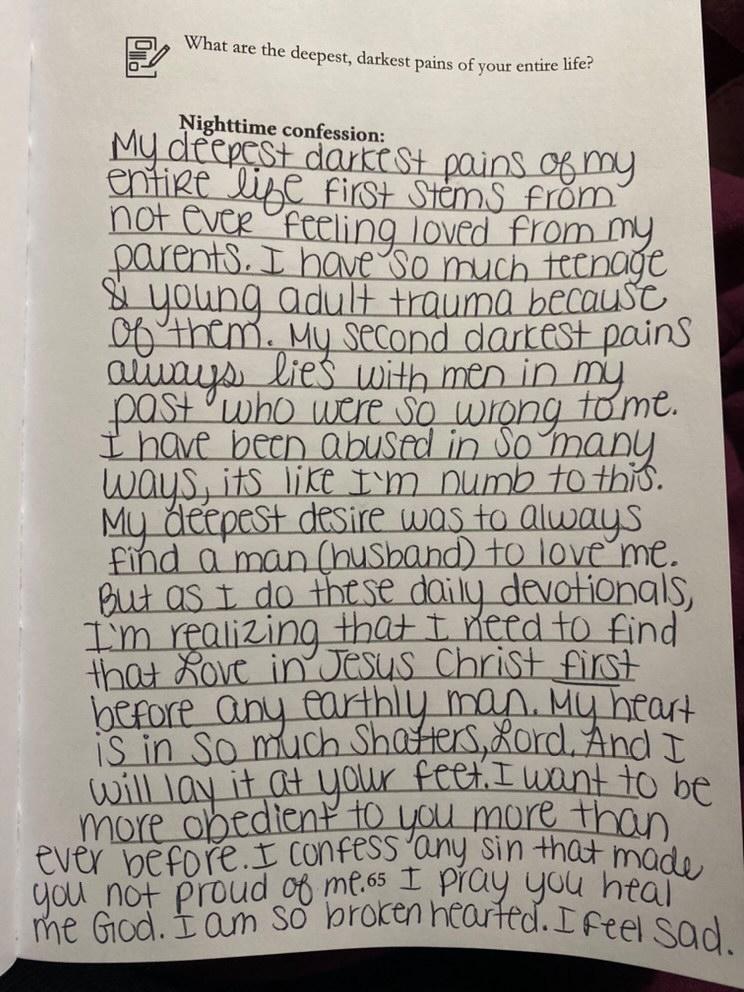 What are the deepest, darkest pains of your entire life?
Nighttime confession:
My deepest darkest pains of my
entire life first stems from
not ever feeling loved from my
parents. I have so much teenage
& young adult trauma because
of them. My second darkest pains
always lies with men in my
past who were so wrong to me.
I have been abused in so many
ways, its like I'm numb to this.
My deepest desire was to always
find a man (husband) to love me.
But as I do these daily devotionals,
I'm realizing that I need to find
that Love in Jesus Christ first
before any earthly man. My heart
is in so much shatters, Lord. And I
will lay it at your feet. I want to be
more obedient to you more than
ever before. I confess any sin that made
you not proud of me. 65 I pray you heal
me God. I am so broken hearted. I feel sad.